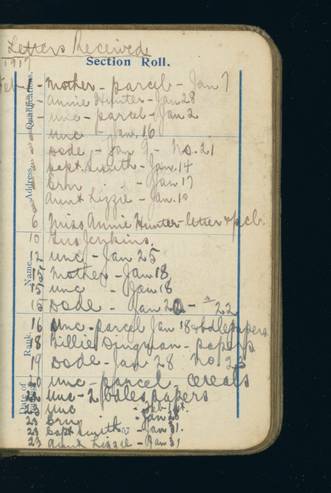 Letters Received
1917
Section Roll.
Feb - Mother - parcel - Jan 7
Annie Hunter - Jan 28
unc - parcel - Jan 2
unc - Jan. 16
Dode - Jan 9 - No. 21
Capt. Smith - Jan. 14
Erin - Jan 17
Aunt Lizzie - Jan. 10
6 Miss Annie Hunter - letter & pcl.
10 Jenkins.
12 unc - Jan 25
Mother - Jan 18
15 unc - Jan 18
15 Dode - Jan 20 - 22
16 unc - parcel Jan 18 & bdle papers
18 Billie Dingman - papers
19 Dode - Jan 28 No 23
20 unc - parcel - cereals
22 unc - 2 bdles papers
23 unc - Feb 1st.
23 Erin - Jan 28
23 Capt Smith - Jan 31.
23 Aunt Lizzie - Jan 31
Qualification.
Address.
Name.
Rank.
Date of